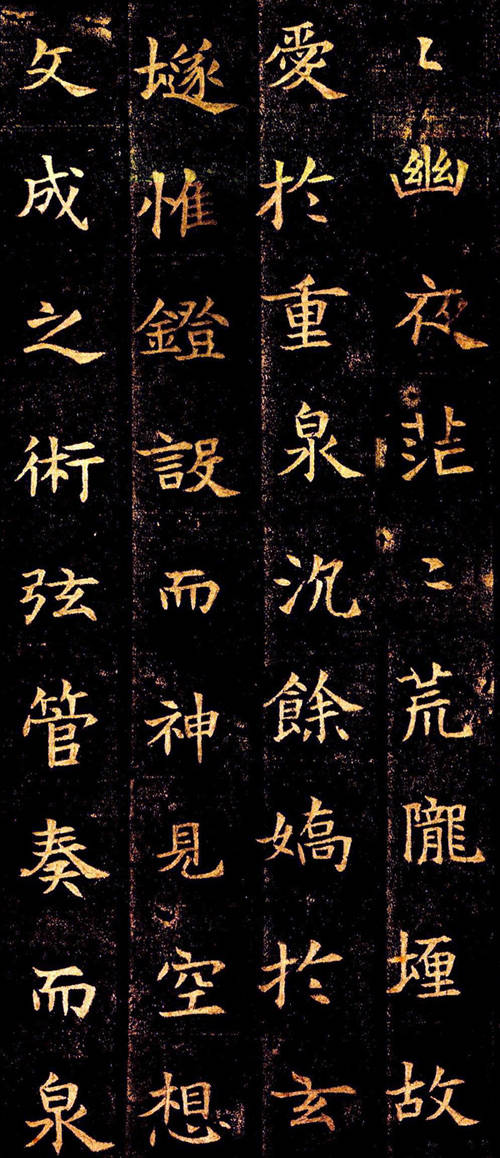 〻幽夜茫〻荒隴堙故
愛於重泉沉餘嬌於玄
𡑞惟鐙設而神見空想
文成之術弦管奏而泉